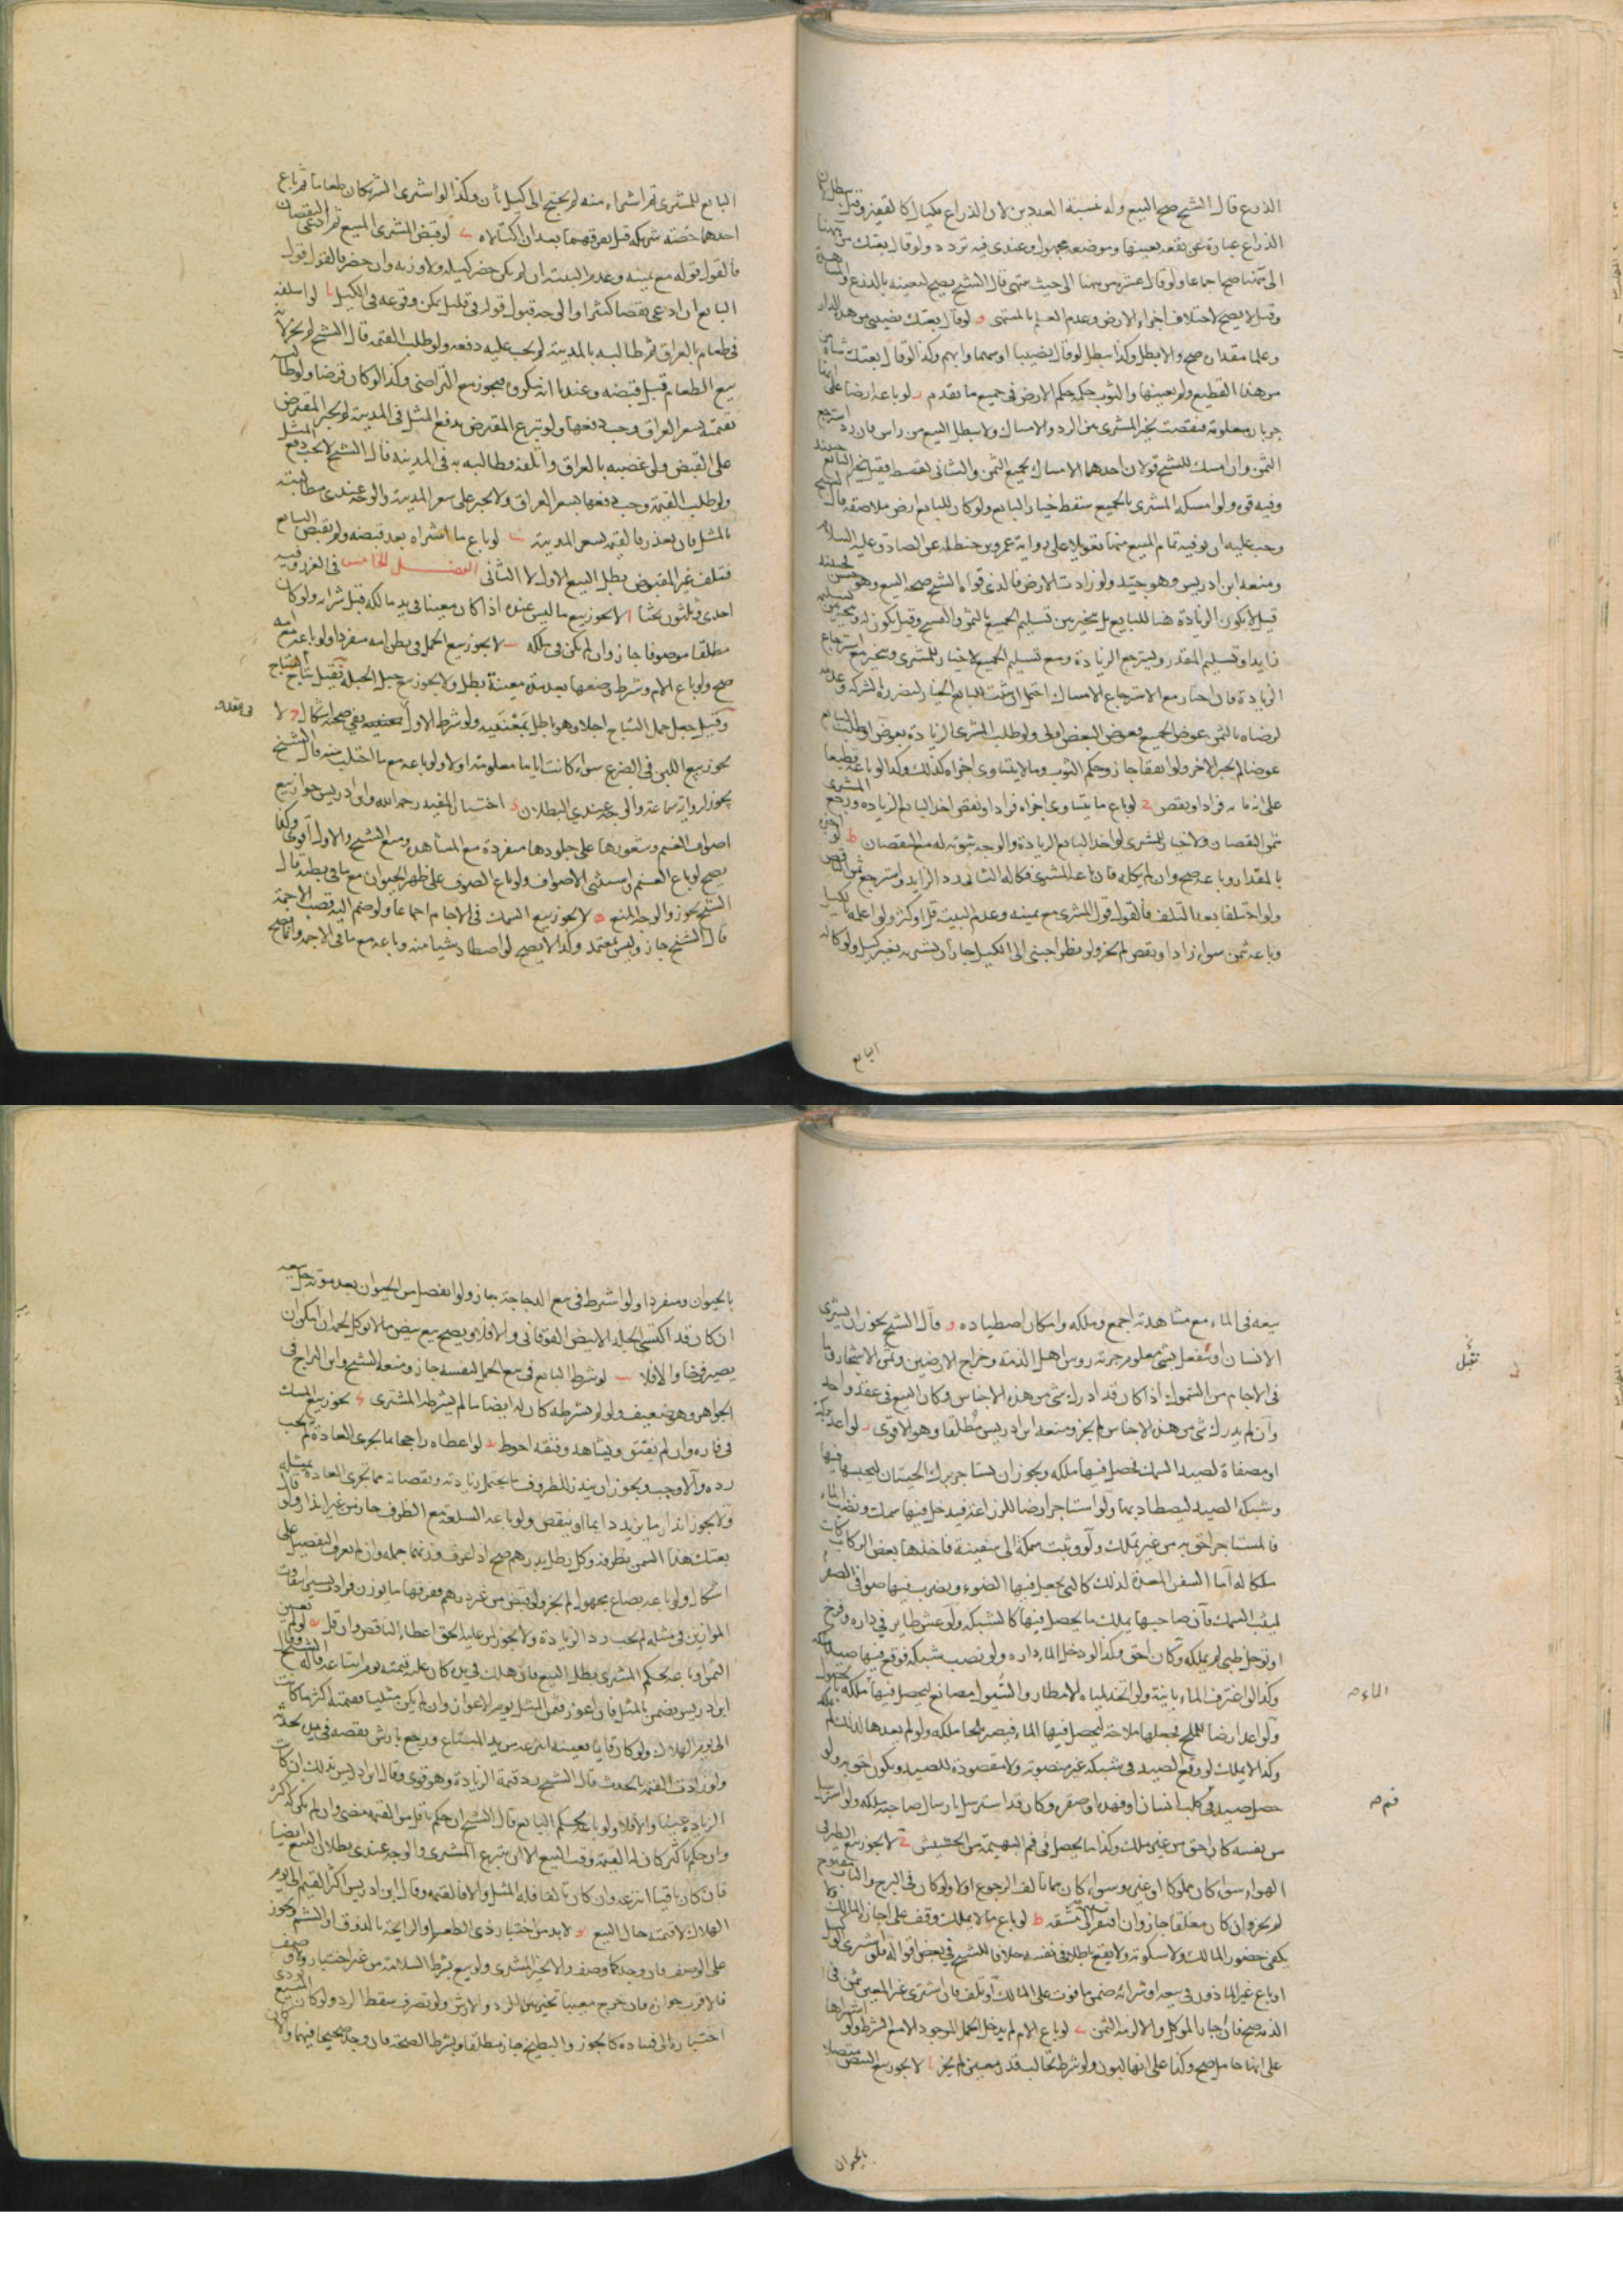 الذرع قال الشيخ صح البيع وله نسبة العددين لان الذراع مكيال كالقفيز وقيل يبطل لان
الذراع عبارة عن بقعه بعينها وموضعه مجهول وعندى فيه تردد ولو قال بعتك من ههنا
الى ههنا صح اجماعا ولو قال عشره من ههنا الى حيث ينتهى قال الشيخ يصح لتعينه بالذرع والمشاهدة
وقيل لا يصح لاختلاف اجزاء الارض وعدم العلم بالمنتهى و لو قال بعتك نصيبى من هذه الدار
وعلما مقداره صح والا بطل وكذا يبطل لو قال نصيبا او سهما وابهم وكذا لو قال بعتك شاة من
من هذا القطيع ولم يعينها والثوب حكمه حكم الارض فى جميع ما تقدم ر لو باعه ارضا على انها
جربان معلومة فنقصت تخير المشترى بين الرد والامساك ولا يبطل البيع من راس فان رد استرجع
الثمن وان امسك فللشيخ قولان احدهما الامساك بجميع الثمن والثانى بقسطه فيتخير البايع حينئذ
وفيه قوه ولو امسكه المشترى بالجميع سقط خيار البايع ولو كان للبايع ارض ملاصقة قال الشيخ
وجب عليه ان يوفيه تمام المبيع منها تعويلا على رواية عمرو بن حنظله عن الصادق عليه السلام
ومنعه ابن ادريس وهو جيد ولو زادت الارض فالذى قواه الشيخ صحة البيع وهو حسن فحينئذ
قيل لا يكون الزيادة هنا للبايع بل يتخير بين تسليم الجميع بالثمن والفسخ وقيل يكون له ويتخير بين تسليم
زايدا وتسليم المقدر ويسترجع الزيادة ومع تسليم الجميع لا خيار للمشترى ويتخير مع استرجاع
الزيادة فان اختار مع الاسترجاع الامساك احتمل ان يثبت للبايع الخيار لتضرره بالشركه وعدمه
لرضاه بالثمن عوض الجميع فعوض البعض اولى ولو طلب المشترى الزيادة بعوض او طلب البايع
عوضا لم يجبر الاخر ولو اتفقا جاز وحكم الثوب وما لا يتساوى اجزاه كذلك وكذا لو باعه قطيعا
على انه مايه فزاد او نقص ح لو باع ما يتساوى اجزاه فزاد او نقص اخذ البايع الزياده ورجع المشترى
بثمن النقصان ولا خيار للمشترى لو اخذ البايع الزيادة والوجه ثبوته له مع النقصان ط لو اخبره
بالمقدار وباعه صح وان لم يكله فان باعه المشترى فكاله الثانى رد الزايد واسترجع ثمن الناقص
ولو اختلفا بعد التلف فالقول قول المشترى مع يمينه وعدم البينة قل او كثر ولو اعلمه بالكيل
وباعه بثمن سواء زاد او نقص لم يجز ولو نظر اجنبى الى الكيل جاز ان يشتريه بغير كيل ولو كاله
البايع
البايع للمشترى ثم اشتراه منه لم يحتج الى كيل ثان وكذا لو اشترى الشريكان طعاما ثم باع
احدهما حصته شريكه قبل تفرقهما بعد ان اكتالاه ى لو قبض المشترى المبيع ثم ادعى النقصان
فالقول قوله مع يمينه وعدم البينة ان لم يكن حضر كيله ولا وزنه وان حضر فالقول قول
البايع ان ادعى نقصا كثيرا والوجه قبول قوله فى قليل يمكن وقوعه فى الكيل يا لو اسلفه
فى طعام بالعراق ثم طالبه بالمدينه لم يجب عليه دفعه ولو طلب القيمه قال الشيخ لم يجز لانه
بيع الطعام قبل قبضه وعندنا انه مكروه فيجوز مع التراضى وكذا لو كان قرضا ولو طالبه
بقيمته بسعر العراق وجب دفعها ولو تبرع المقترض بدفع المثل فى المدينة لم يجبر المقرض
على القبض ولو غصبه بالعراق واتلفه وطالبه به فى المدينه قال الشيخ لا يجب دفع المثل
ولو طلب القيمة وجب دفعها بسعر العراق ولا يجبر على سعر المدينة والوجه عندى مطالبته
بالمثل فان تعذر فالقيمه بسعر المدينة يب لو باع ما اشتراه بعد قبضه ولم يقبض البايع
فتلف غير المقبوض بطل البيع الاول لا الثانى الفصل الخامس فى الغرر وفيه
احدى وثلثون بحثا ا لا يجوز بيع ما ليس عنده اذا كان معينا فى يد مالكه قبل شرائه ولو كان
مطلقا موصوفا جاز وان لم يكن فى ملكه ب لا يجوز بيع الحمل فى بطن امه منفردا ولو باعه مع امه
صح ولو باع الام وشرط وضعها بعد مدة معينة بطل ولا يجوز بيع حبل الحبلة فقيل نتاج النتاج
وقيل جعل حمل النتاج اجلا وهو باطل بمعنييه ولو شرط الاول ففى صحته اشكال ج لا
يجوز بيع اللبن فى الضرع سواء كانت اياما معلومة اولا ولو باعه مع ما احتلب منه قال الشيخ
يجوز لرواية سماعة والوجه عندى البطلان د اختار المفيد رحمه الله وابن ادريس جواز بيع
اصواف الغنم وشعورها على جلودها منفردة مع المشاهده ومنع الشيخ والاول اقوى وكذا
يصح لو باع الغنم واستثنى الاصواف ولو باع الصوف على ظهر الحيوان مع ما فى بطنه قال
الشيخ يجوز والوجه المنع ه لا يجوز بيع السمك فى الاجام اجماعا ولو ضم اليه قصب الاجمة
قال الشيخ جاز وليس بمعتمد وكذا لا يصح لو اصطاد شيا منه وباعه مع ما فى الاجمه وانما يصح
بيعه فى الماء مع مشاهدته اجمع وملكه وامكان اصطياده و قال الشيخ يجوز ان يشترى
الانسان او يتقبل بشى معلوم جزية روس اهل الذمة وخراج الارضين وثمن الاشجار وما
تقبل
فى الاجام من السموك اذا كان قد ادرك شى من هذه الاجناس وكان البيع فى عقد واحد
وان لم يدرك شى من هذه الاجناس لم يجز ومنعه ابن ادريس مطلقا وهو الاقوى ر لو اعد بركة
او مصفاة لصيد السمك فحصل فيها ملكه ويجوز ان يستاجر برك الحيتان ليحبسها فيها
وشبكه الصيد ليصطاد بها ولو استاجر ارضا للزراعة فيدخل فيها سمك ونضب الماء
فالمستاجر احق به من غير تملك ولو وثبت سمكة الى سفينة فاخذها بعض الركاب كانت
ملكا له اما السفن المعدة لذلك كالتى يجعل فيها الضوء ويضرب فيها صوانى الصفر
ليثب السمك فان صاحبها يملك ما يحصل فيها كالشبكه ولو عشش طاير فى داره وفرخ
او توحل ظبى لم يملكه وكان احق وكذا لو دخل الماء داره ولو نصب شبكه فوقع فيها صيد ملكه
وكذا لو اغترف الماء بانية ولو اتخذ لمياه الامطار والسيول مصانع ليحصل فيها ملكه بحصول
الماء صح
ولو اعد ارضا للملح فجعلها ملاحة ليحصل فيها الماء فيصير ملحا ملكه ولو لم يعدها لذلك لم يملكه
وكذا لا يملك لو وقع الصيد فى شبكه غير منصوبه ولا مقصودة للصيد ويكون احق به ولو
حصل صيد فى كلب انسان او فهده او صقره وكان قد استرسل بارسال صاحبه ملكه ولو استرسل
فم صح
من نفسه كان احق من غير ملك وكذا ما يحصل فى فم البهيمة من الحشيش ح لا يجوز بيع الطير فى
الهواء سواء كان مملوكا او غيره وسواء كان مما يالف الرجوع اولا ولو كان فى البرج والباب مفتوح
لم يجز وان كان مغلقا جاز وان افتقر الى مشقه ط لو باع ما لا يملك وقف على اجازة المالك ولا
يكفى حضور المالك ولا سكوته ولا يقع باطلا فى نفسه خلافا للشيخ فى بعض اقواله فلو اشترى الوكيل
او باع غير الماذون فى بيعه او شرائه ضمن ما فوت على المالك او تلف فان اشترى غير المعين بثمن فى
الذمه صح فان اجاز الموكل والا لزمه الثمن ى لو باع الام لم يدخل الحمل الموجود الا مع الشرط ولو اشتراها
على انها حامل صح وكذا على انها لبون ولو شرط تحالب قدر معين لم يجز يا لا يجوز بيع البيض متصلا
بالحيوان
بالحيوان ومنفردا ولو اشترط فى بيع الدجاجة جاز ولو انفصل من الحيوان بعد موته حل بيعه
ان كان قد اكتسى الجلد الابيض الفوقانى والا فلا ويصح بيع بيض ما لا يوكل لحمه ان امكن ان
يصير فرخا والا فلا يب لو شرط البايع فى بيع الحمل لنفسه جاز ومنعه الشيخ وابن البراج فى
الجواهر وهو ضعيف ولو لم يشترطه كان له ايضا ما لم يشترطه المشترى يج يجوز بيع المسك
فى فاره وان لم يفتق ويشاهد وفتقه احوط يد لو اعطاه راجحا بما يجرى العاده لم يجب
رده والا وجب ويجوز ان يندر للظروف ما يحتمل زيادته ونقصانه مما تجرى العادة بمثله
ولا يجوز اندار ما يزيد دايما او ينقص ولو باعه السلعة مع الظرف جاز من غير اندار ولو قال
بعتك هذا السمن بظرفه وكل رطل بدرهم صح اذا عرف وزنهما جمله وان لم يعرف التفصيل على
اشكال ولو باعه بصاع مجهول لم يجز ولو قبض من غير درهم ففرقها ما يوزن فزاد يسير لتفاوت
الموازين فى مثله لم يجب رد الزيادة ولا يجوز لمن عليه الحق اعطاء الناقص وان قل يه لو لم يعين
الثمن او باعه بحكم المشترى بطل البيع فان هلك فى يده كان عليه قيمته يوم ابتاعه قاله الشيخ وقال
ابن ادريس يضمن بالمثل فان اعوز فثمن المثل يوم الاعواز وان لم يكن مثليا فقيمته اكثر ما كانت
الى يوم الهلاك ولو كان قايما بعينه انتزعه من يد المبتاع ورجع بارش نقصه فى يده بحدث
ولو زادت القيمة بالحدث قال الشيخ رد قيمة الزيادة وهو قوى وقال ابن ادريس بذلك ان كانت
الزياده عينا والا فلا ولو باعه بحكم البايع قال الشيخ ان حكم باقل من القيمه مضى وان لم يكن له اكثر
وان حكم باكثر كان له القيمة وقت البيع الا ان يتبرع المشترى والوجه عندى بطلان البيع ايضا
فان كان باقيا انتزعه وان كان تالفا فله المثل والا فالقيمه وقال ابن ادريس اكثر القيم الى يوم
الهلاك لا قيمته حال البيع يو لا بد من اختبار ذى الطعم والرايحة بالذوق او الشم ويجوز
على الوصف فان وجد كما وصف والا تخير المشترى ولو بيع بشرط السلامة من غير اختبار ولا وصف
فالاقرب جوازه فان خرج معيبا تخير بين الرد والارش ولو تصرف سقط الرد ولو كان المبيع يودى
اختباره الى فساده كالجوز والبطيخ جاز مطلقا وبشرط الصحة فان وجد صحيحا فيهما والا كان